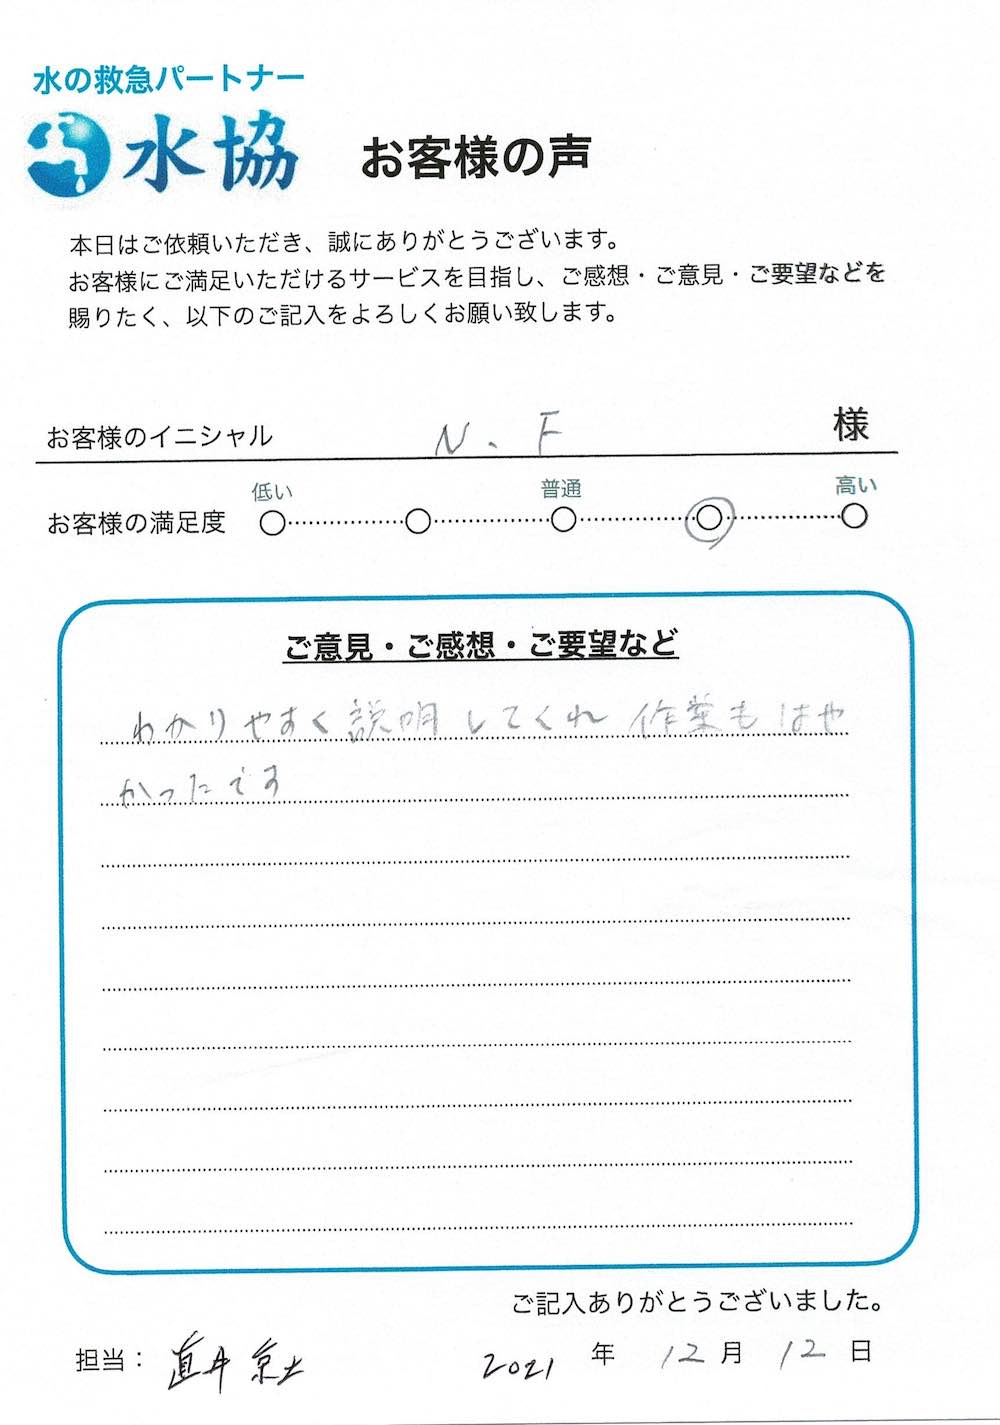 水の救急パートナー
水協
お客様の声
本日はご依頼いただき、誠にありがとうございます。
お客様にご満足いただけるサービスを目指し、ご感想・ご意見・ご要望などを
賜りたく、以下のご記入をよろしくお願い致します。
お客様のイニシャル N.F 様
低い 普通 高い
お客様の満足度
ご意見・ご感想・ご要望など
わかりやすく説明してくれ 作業もはや
かったです
ご記入ありがとうございました。
担当：直井 2021年12月12日